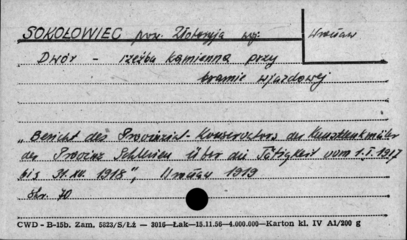 SOKOŁOWIEC pow. Złotoryja woj: Wrocław
Dwór - rzeźba kamienna przy
bramie wjazdowej
"Bericht des Provinzial-Konservators der Kunstdenkmäler
der Provinz Schlesien über die Tätigkeit vom 1.I.1917
bis 31.XII 1918", Wrocław 1919
Str. 70
CWD - B-15b. Zam. 5823/S/Łż — 2016—Łak—15.11.56—4.000.000—Karton kl. IV A1/200 g